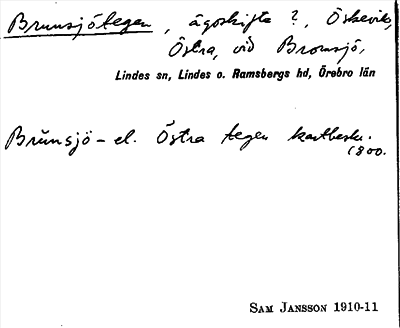 Brunsjötegen, ägoskifte?, Öskevik,
Östra, vid Bromsjö,
Lindes sn, Lindes o. Ramsbergs hd, Örebro län
Brŭnsjö- el. Östra tegen kartbeskr.
1800.
SAM JANSSON 1910-11